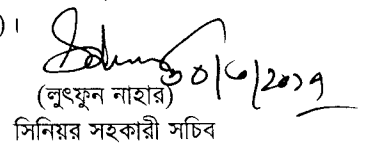 )।
৩০/৬/২০১৭
(লুৎফুন নাহার)
সিনিয়র সহকারী সচিব